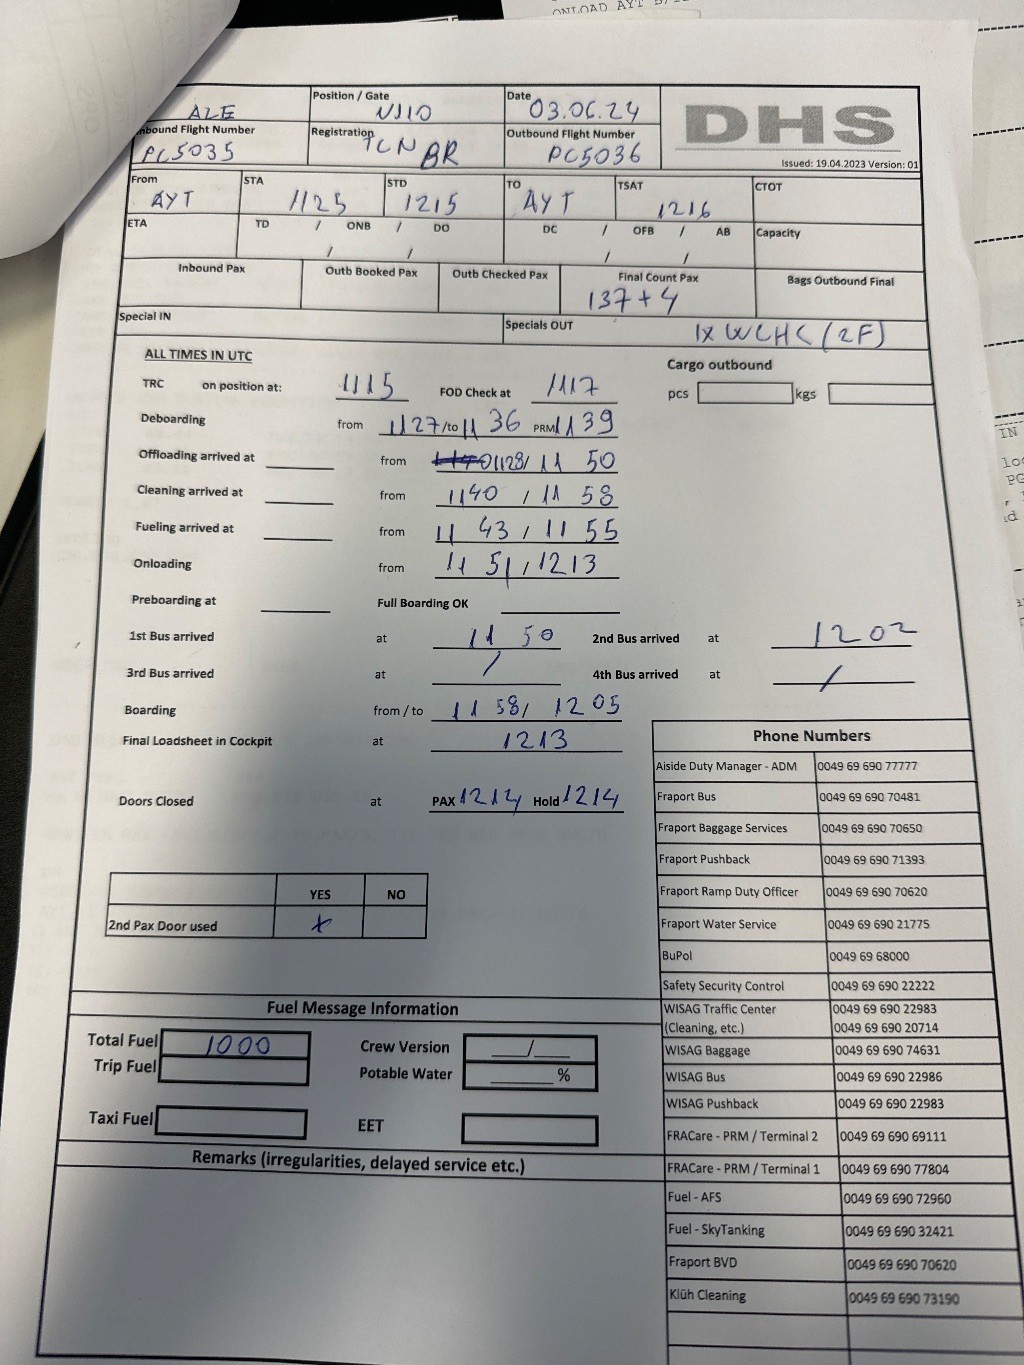 ONLOAD AYT
ALE
Position / Gate
VJ10
Date
03.06.24
DHS
Issued: 19.04.2023 Version: 01
nbound Flight Number
PC5035
Registration
TCN BR
Outbound Flight Number
PC5036
From
AYT
STA
1125
STD
1215
TO
AYT
TSAT
1216
CTOT
ETA
TD / ONB / DO
/ /
DC / OFB / AB
/ /
Capacity
Inbound Pax
Outb Booked Pax
Outb Checked Pax
Final Count Pax
137+4
Bags Outbound Final
Special IN
Specials OUT
1X WCHC (2F)
ALL TIMES IN UTC
Cargo outbound
pcs kgs
TRC on position at: 1115 FOD Check at 1117
Deboarding from 1127/to 1136 PRM 1139
Offloading arrived at from 1128/ 1150
Cleaning arrived at from 1140 / 1158
Fueling arrived at from 1143 / 1155
Onloading from 1151 / 1213
Preboarding at Full Boarding OK
1st Bus arrived at 1150 2nd Bus arrived at 1202
3rd Bus arrived at / 4th Bus arrived at /
Boarding from / to 1158/ 1205
Final Loadsheet in Cockpit at 1213
Doors Closed at PAX 1214 Hold 1214
YES NO
2nd Pax Door used x
Fuel Message Information
Total Fuel 1000
Trip Fuel
Crew Version /
Potable Water %
Taxi Fuel
EET
Remarks (irregularities, delayed service etc.)
Phone Numbers
Aiside Duty Manager - ADM 0049 69 690 77777
Fraport Bus 0049 69 690 70481
Fraport Baggage Services 0049 69 690 70650
Fraport Pushback 0049 69 690 71393
Fraport Ramp Duty Officer 0049 69 690 70620
Fraport Water Service 0049 69 690 21775
BuPol 0049 69 68000
Safety Security Control 0049 69 690 22222
WISAG Traffic Center 0049 69 690 22983
(Cleaning, etc.) 0049 69 690 20714
WISAG Baggage 0049 69 690 74631
WISAG Bus 0049 69 690 22986
WISAG Pushback 0049 69 690 22983
FRACare - PRM / Terminal 2 0049 69 690 69111
FRACare - PRM / Terminal 1 0049 69 690 77804
Fuel - AFS 0049 69 690 72960
Fuel - SkyTanking 0049 69 690 32421
Fraport BVD 0049 69 690 70620
Klüh Cleaning 0049 69 690 73190
IN